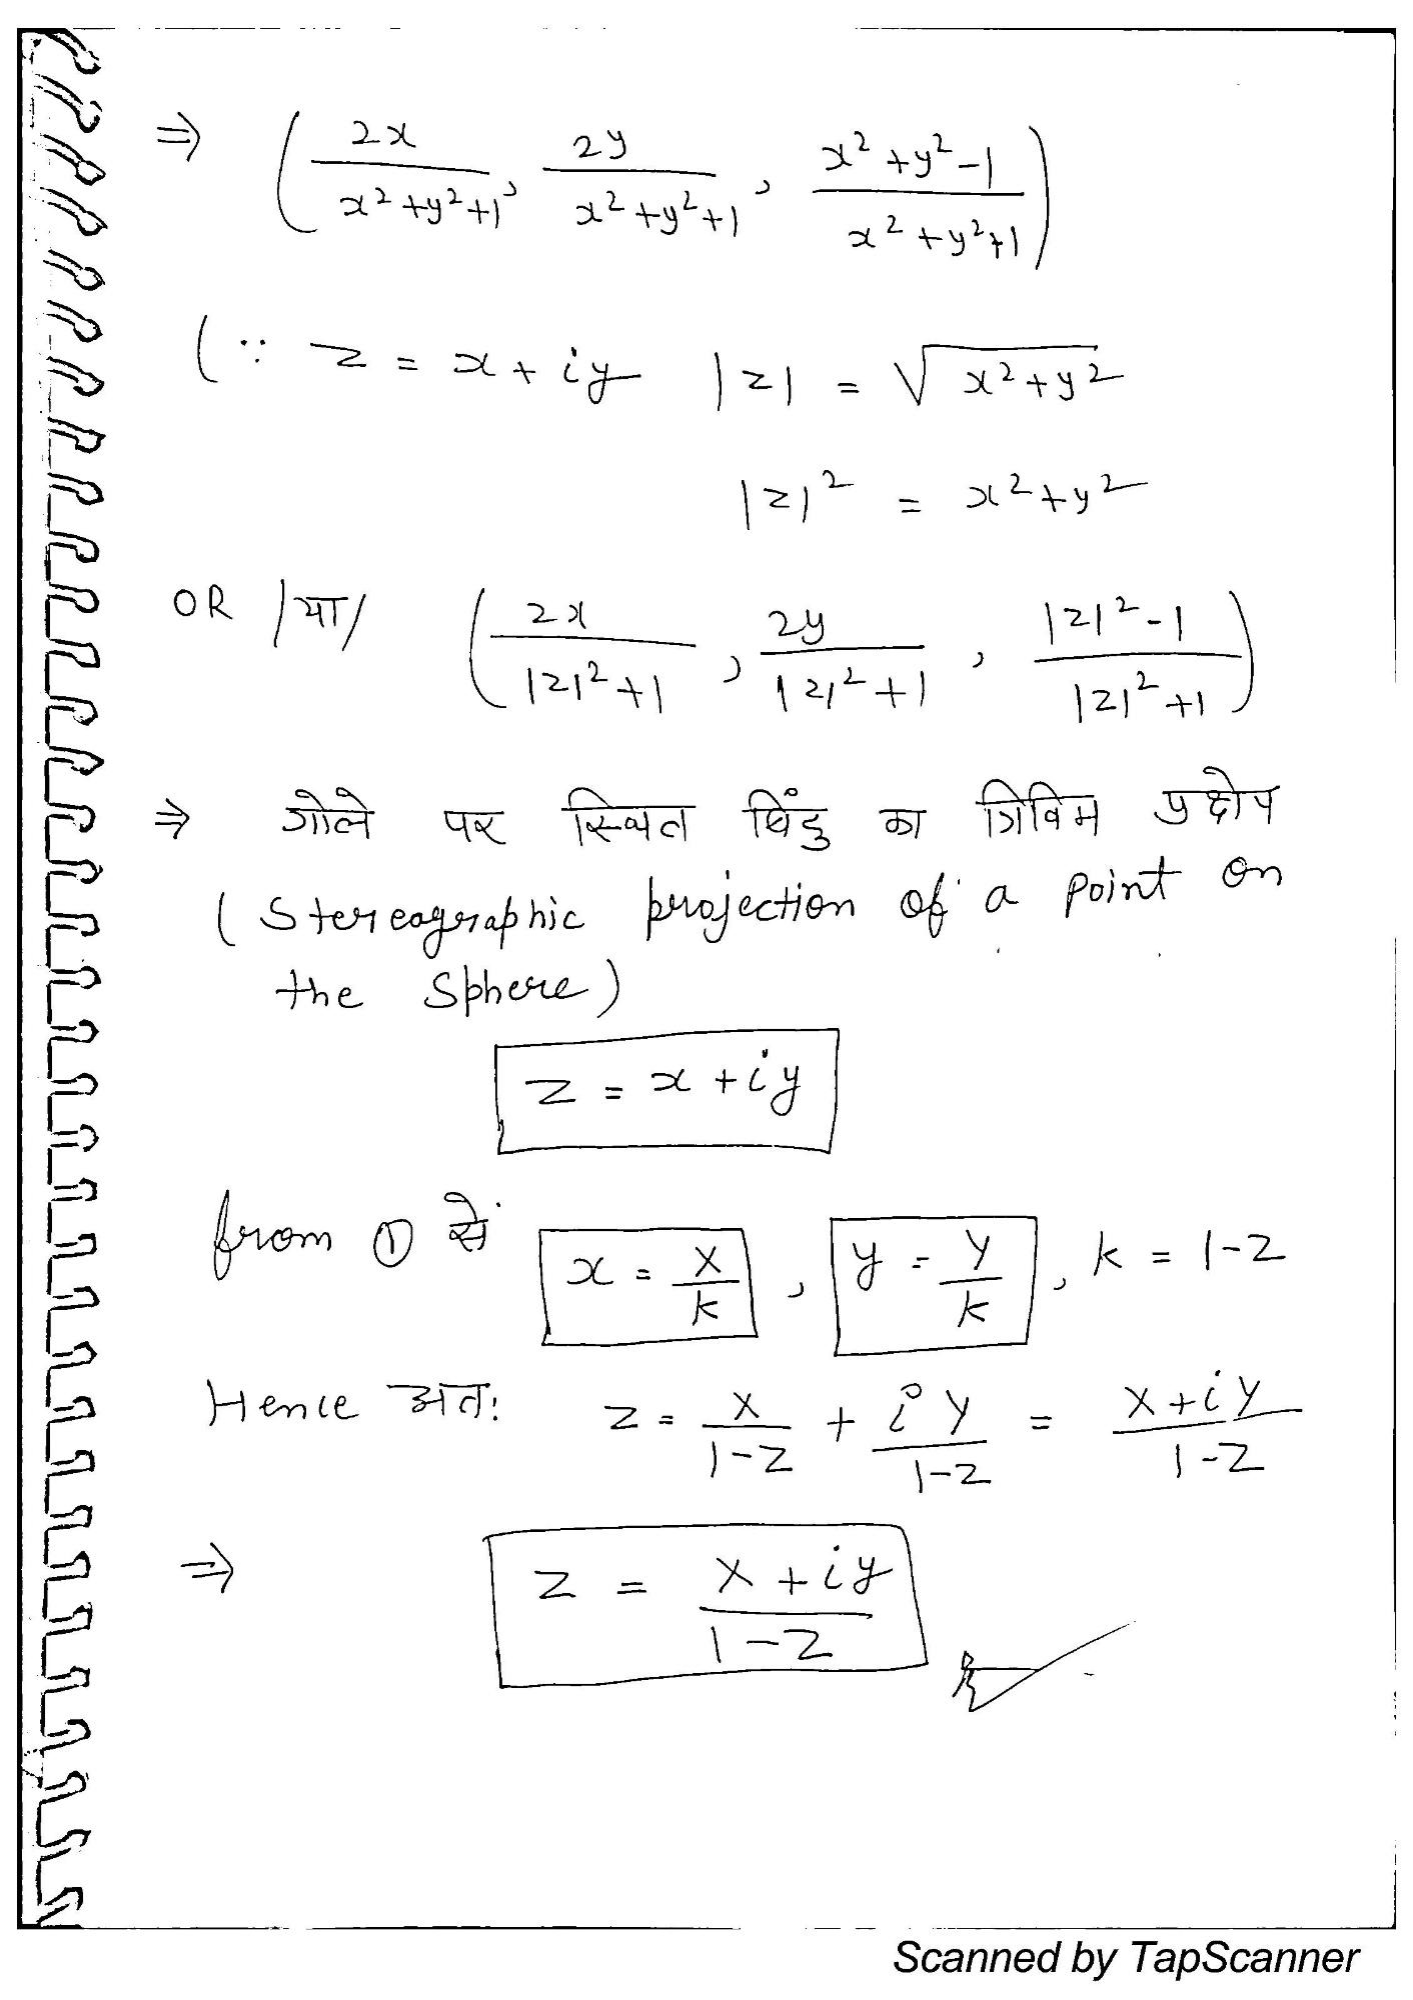 ⇒ ( 2x / x² + y² + 1 , 2y / x² + y² + 1 , x² + y² - 1 / x² + y² + 1 )
( ∵ z = x + iy |z| = √ x² + y²
|z|² = x² + y²
OR /या/ ( 2x / |z|² + 1 , 2y / |z|² + 1 , |z|² - 1 / |z|² + 1 )
⇒ गोले पर स्थित बिंदु का त्रिविम प्रक्षेप
( Stereographic projection of a point on
the Sphere)
z = x + iy
from ① से x = X / k , y = Y / k , k = 1 - Z
Hence अतः z = X / 1 - Z + i Y / 1 - Z = X + i Y / 1 - Z
⇒ z = X + iy / 1 - Z
Scanned by TapScanner